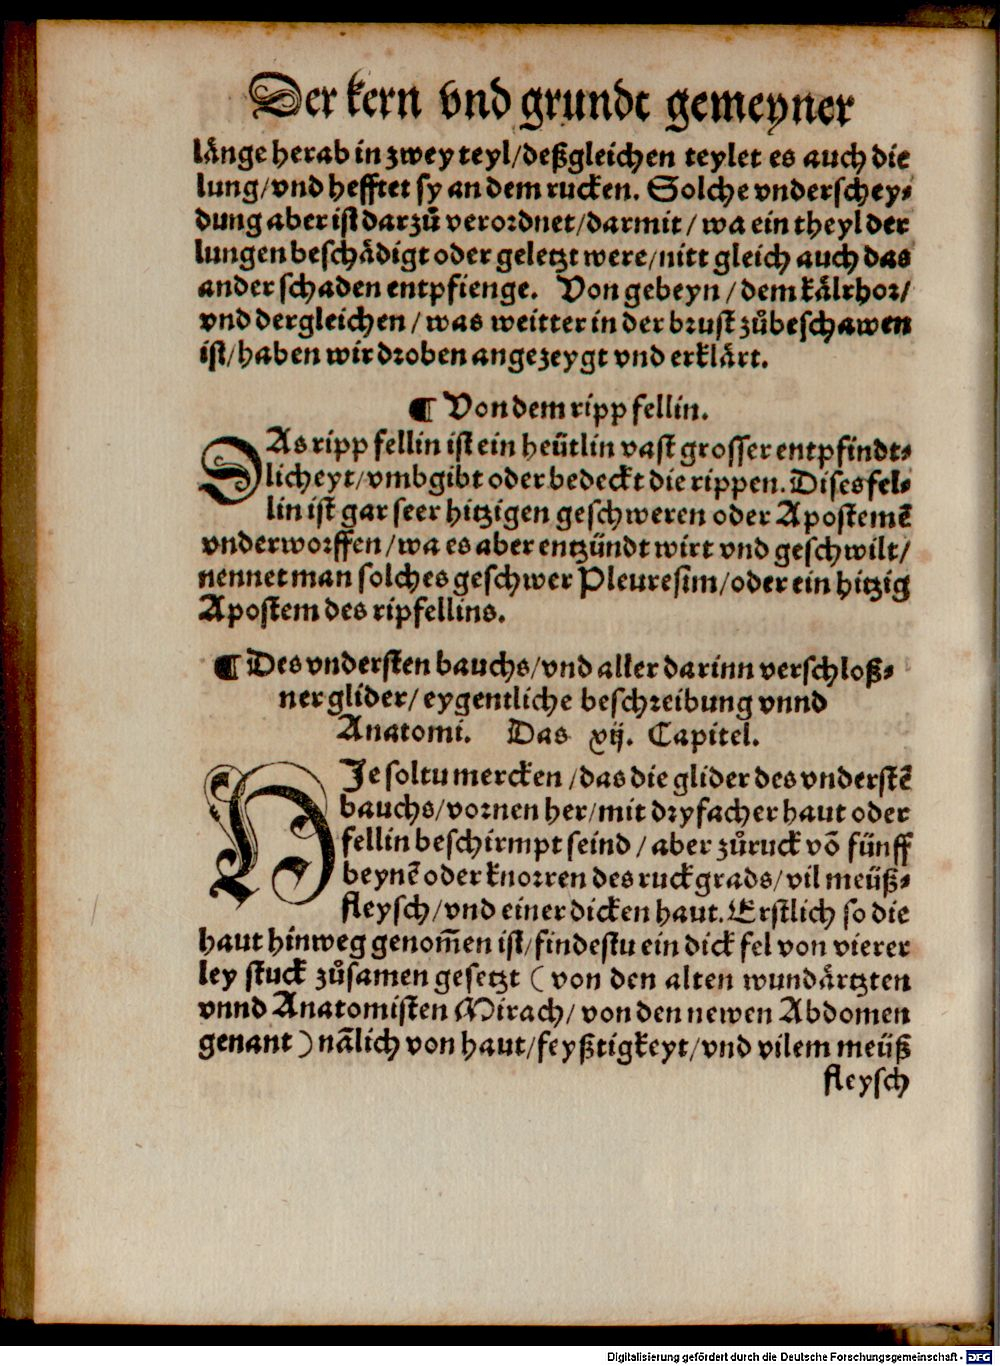 Der kern vnd grundt gemeyner
länge herab in zwey teyl/deßgleichen teylet es auch die
lung/vnd hefftet sy an dem rucken. Solche vnderschey⸗
dung aber ist darzů verordnet/darmit/ wa ein theyl der
lungen beschädigt oder geletzt were/nitt gleich auch das
ander schaden entpfienge. Von gebeyn/ dem kälrhor/
vnd dergleichen/ was weitter in der brust zůbeschawen
ist/haben wir droben angezeygt vnd erklärt.
¶ Von dem ripp fellin.
DAs ripp fellin ist ein heütlin vast grosser entpfindt⸗
licheyt/vmbgibt oder bedeckt die rippen. Dises fel⸗
lin ist gar seer hitzigen geschweren oder Apostemē
vnderworffen/wa es aber entzündt wirt vnd geschwilt/
nennet man solches geschwer Pleuresim/oder ein hitzig
Apostem des ripfellins.
¶ Des vndersten bauchs/vnd aller darinn verschloß⸗
ner glider/ eygentliche beschreibung vnnd
Anatomi. Das xij. Capitel.
HJe soltu mercken/das die glider des vnderstē
bauchs/vornen her/mit dryfacher haut oder
fellin beschirmpt seind/ aber zůruck vō fünff
beynē oder knorren des ruckgrads/vil meüß⸗
fleysch/vnd einer dicken haut. Erstlich so die
haut hinweg genom̄en ist/findestu ein dick fel von vierer
ley stuck zůsamen gesetzt (von den alten wundärtzten
vnnd Anatomisten Mirach/ von den newen Abdomen
genant) nālich von haut/feyßtigkeyt/vnd vilem meüß
fleysch
Digitalisierung gefördert durch die Deutsche Forschungsgemeinschaft - DFG